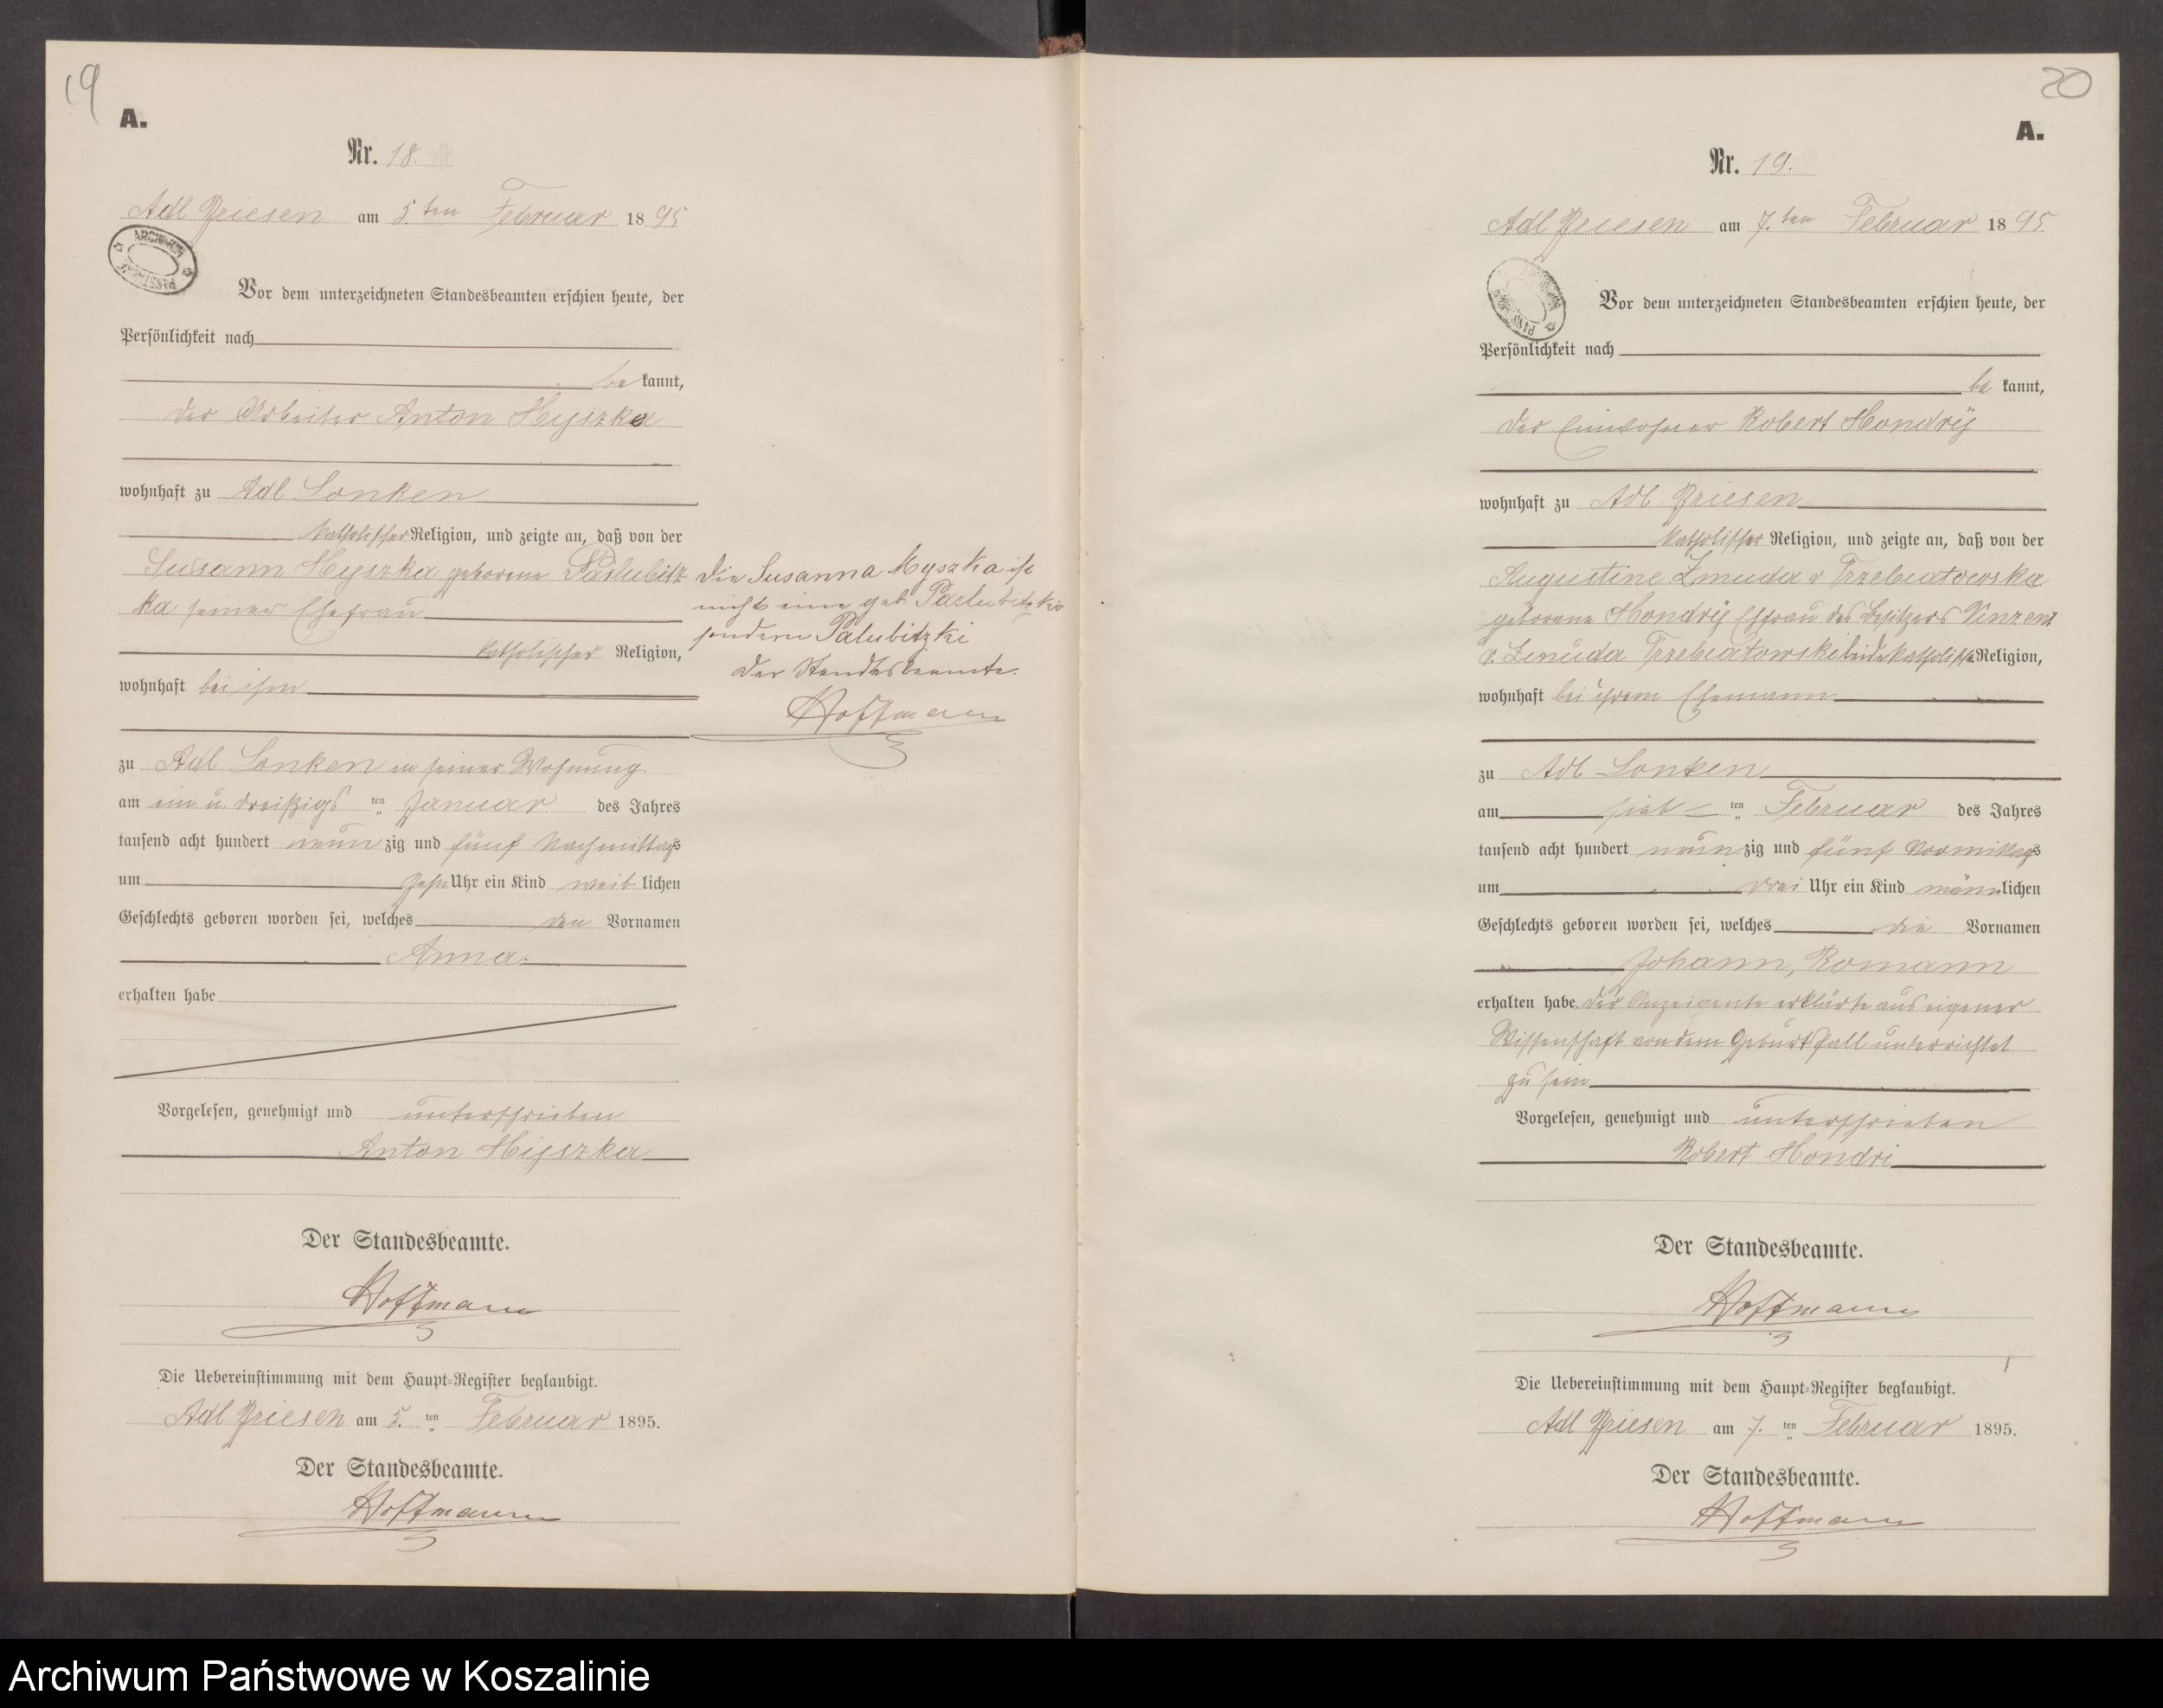 19
A.
Nr. 18.
Adl Briesen am 5.ten Februar 1895
ARCHIWUM PAŃSTWOWE
Vor dem unterzeichneten Standesbeamten erschien heute, der
Persönlichkeit nach
bekannt,
der Arbeiter Anton Myszka
wohnhaft zu Adl Lonken
katholischer Religion, und zeigte an, daß von der
Susann Myszka geborene Paslubitz
ka seiner Ehefrau
katholischer Religion,
wohnhaft bei ihm
zu Adl Lonken in seiner Wohnung
am ein u. dreißigs ten Januar des Jahres
tausend acht hundert neunzig und fünf Nachmittags
um zehn Uhr ein Kind weiblichen
Geschlechts geboren worden sei, welches den Vornamen
Anna.
erhalten habe
Vorgelesen, genehmigt und unterschrieben
Anton Myszka
Der Standesbeamte.
Hoffmann
Die Uebereinstimmung mit dem Haupt-Register beglaubigt.
Adl Briesen am 5. ten Februar 1895.
Der Standesbeamte.
Hoffmann
Die Susanna Myszka ist
nicht eine geb. Pazlubitzki
sondern Palubitzki
Der Standesbeamte.
Hoffmann
20
A.
Nr. 19.
Adl Briesen am 7.ten Februar 1895.
Vor dem unterzeichneten Standesbeamten erschien heute, der
Persönlichkeit nach
bekannt,
der Einwohner Robert Hondrÿ
wohnhaft zu Adl Briesen
katholischer Religion, und zeigte an, daß von der
Augustine Zmuda v Trzebiatowska
geborene Hondrÿ Ehefrau des Besitzers Vinzent
v. Zmuda Trzebiatowski beide katholische Religion,
wohnhaft bei ihrem Ehemann
zu Adl Lonken
am sieb ten Februar des Jahres
tausend acht hundert neunzig und fünf Vormittags
um drei Uhr ein Kind männlichen
Geschlechts geboren worden sei, welches die Vornamen
Johann, Romann
erhalten habe. Der Anzeigende erklärte aus eigener
Wissenschaft von dem Geburtsfall unterrichtet
zu sein
Vorgelesen, genehmigt und unterschrieben
Robert Hondri
Der Standesbeamte.
Hoffmann
Die Uebereinstimmung mit dem Haupt-Register beglaubigt.
Adl Briesen am 7. ten Februar 1895.
Der Standesbeamte.
Hoffmann
Archiwum Państwowe w Koszalinie